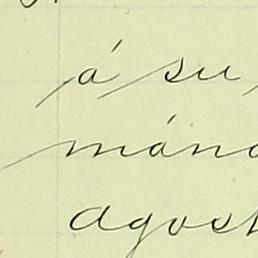 á su
mána
agost